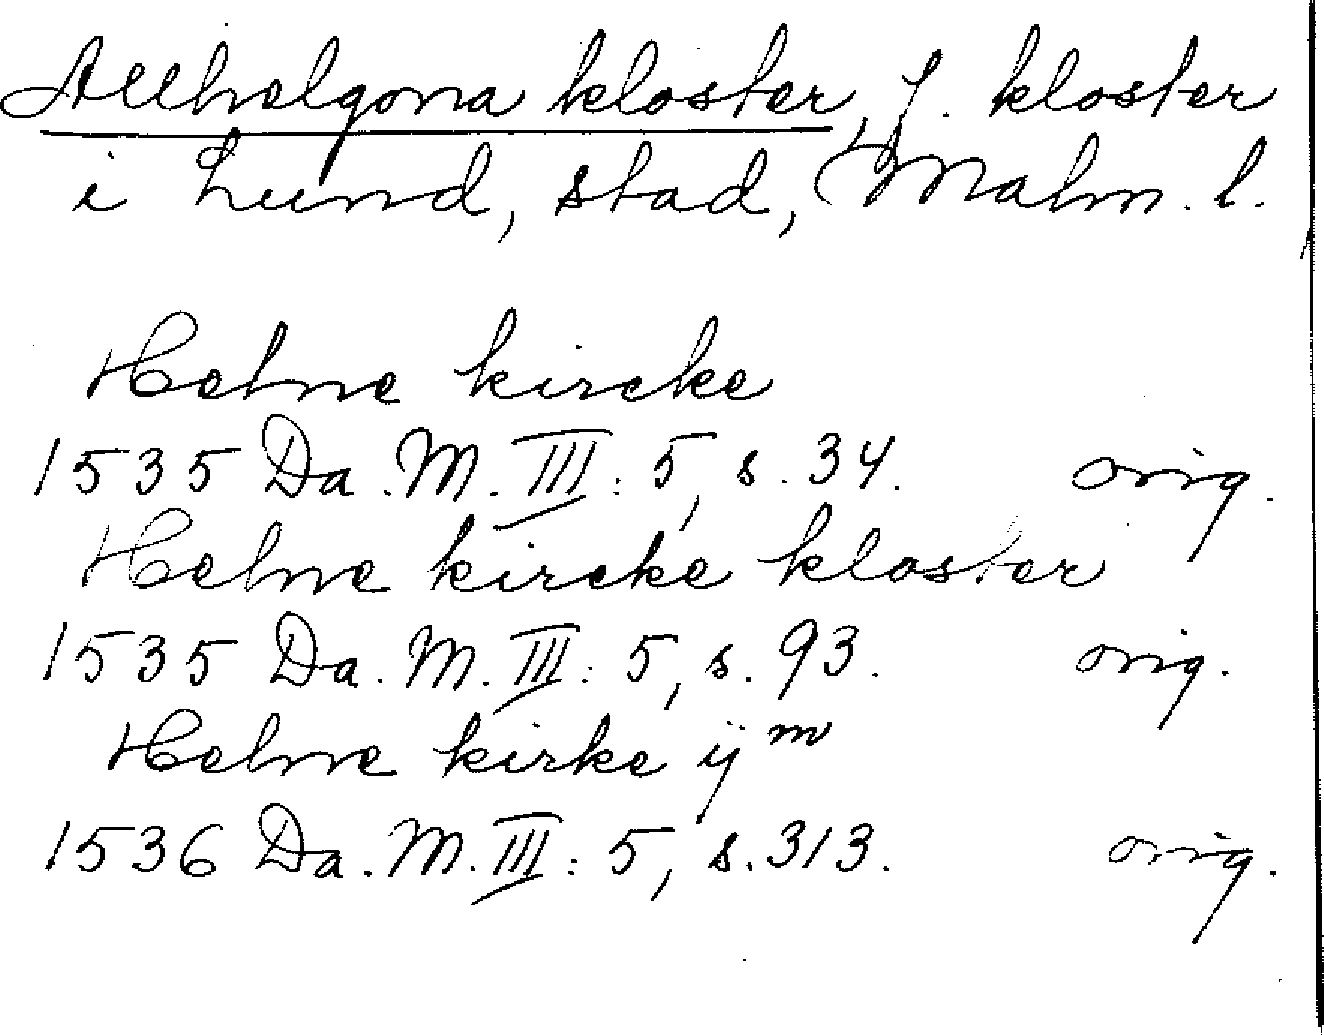 Allhelgona kloster, f. kloster
i Lund, stad, Malm. l.
Helne kircke
1535 Da. M. III: 5, s. 34. orig.
Helne kircke kloster
1535 Da. M. III: 5, s. 93. orig.
Helne kirke ij^m
1536 Da. M. III: 5, s. 313. orig.